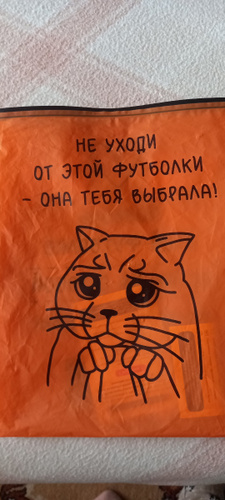 НЕ УХОДИ
ОТ ЭТОЙ ФУТБОЛКИ
- ОНА ТЕБЯ ВЫБРАЛА!